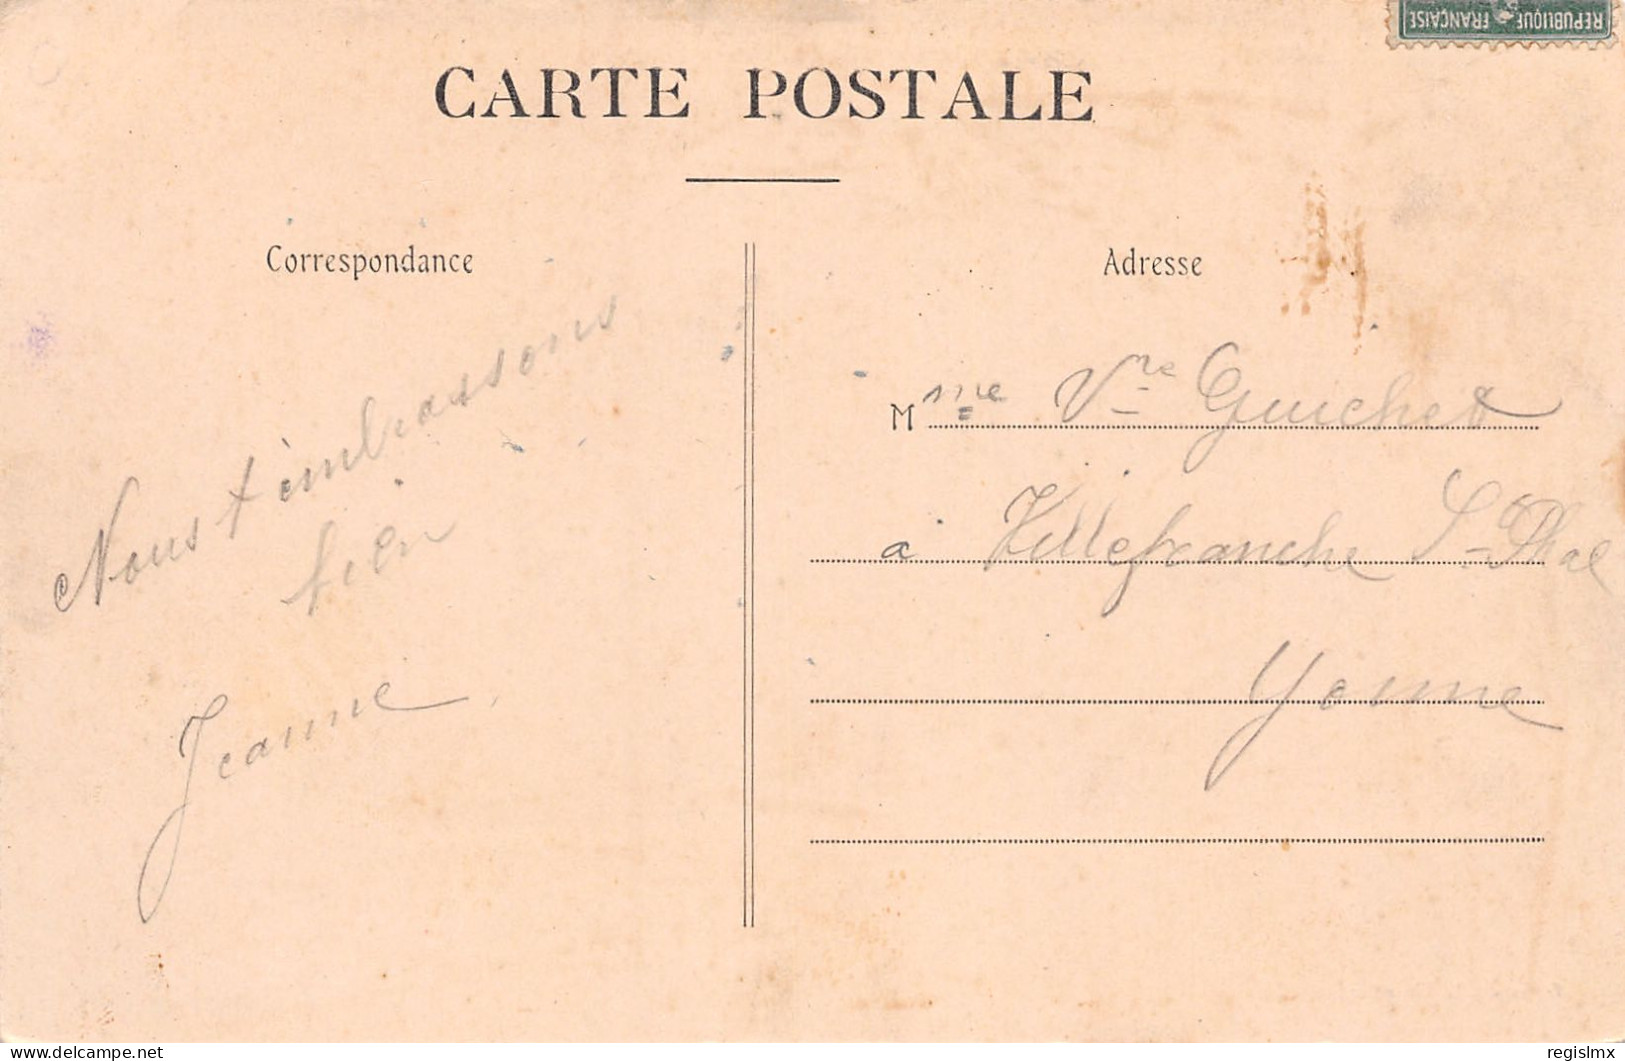 RÉPUBLIQUE FRANÇAISE
CARTE POSTALE
Correspondance
Nous t'embrassons
bien
Jeanne
Adresse
Mme Vve Guichet
a Villefranche St-Phal
Yonne
delcampe.net
regislmx